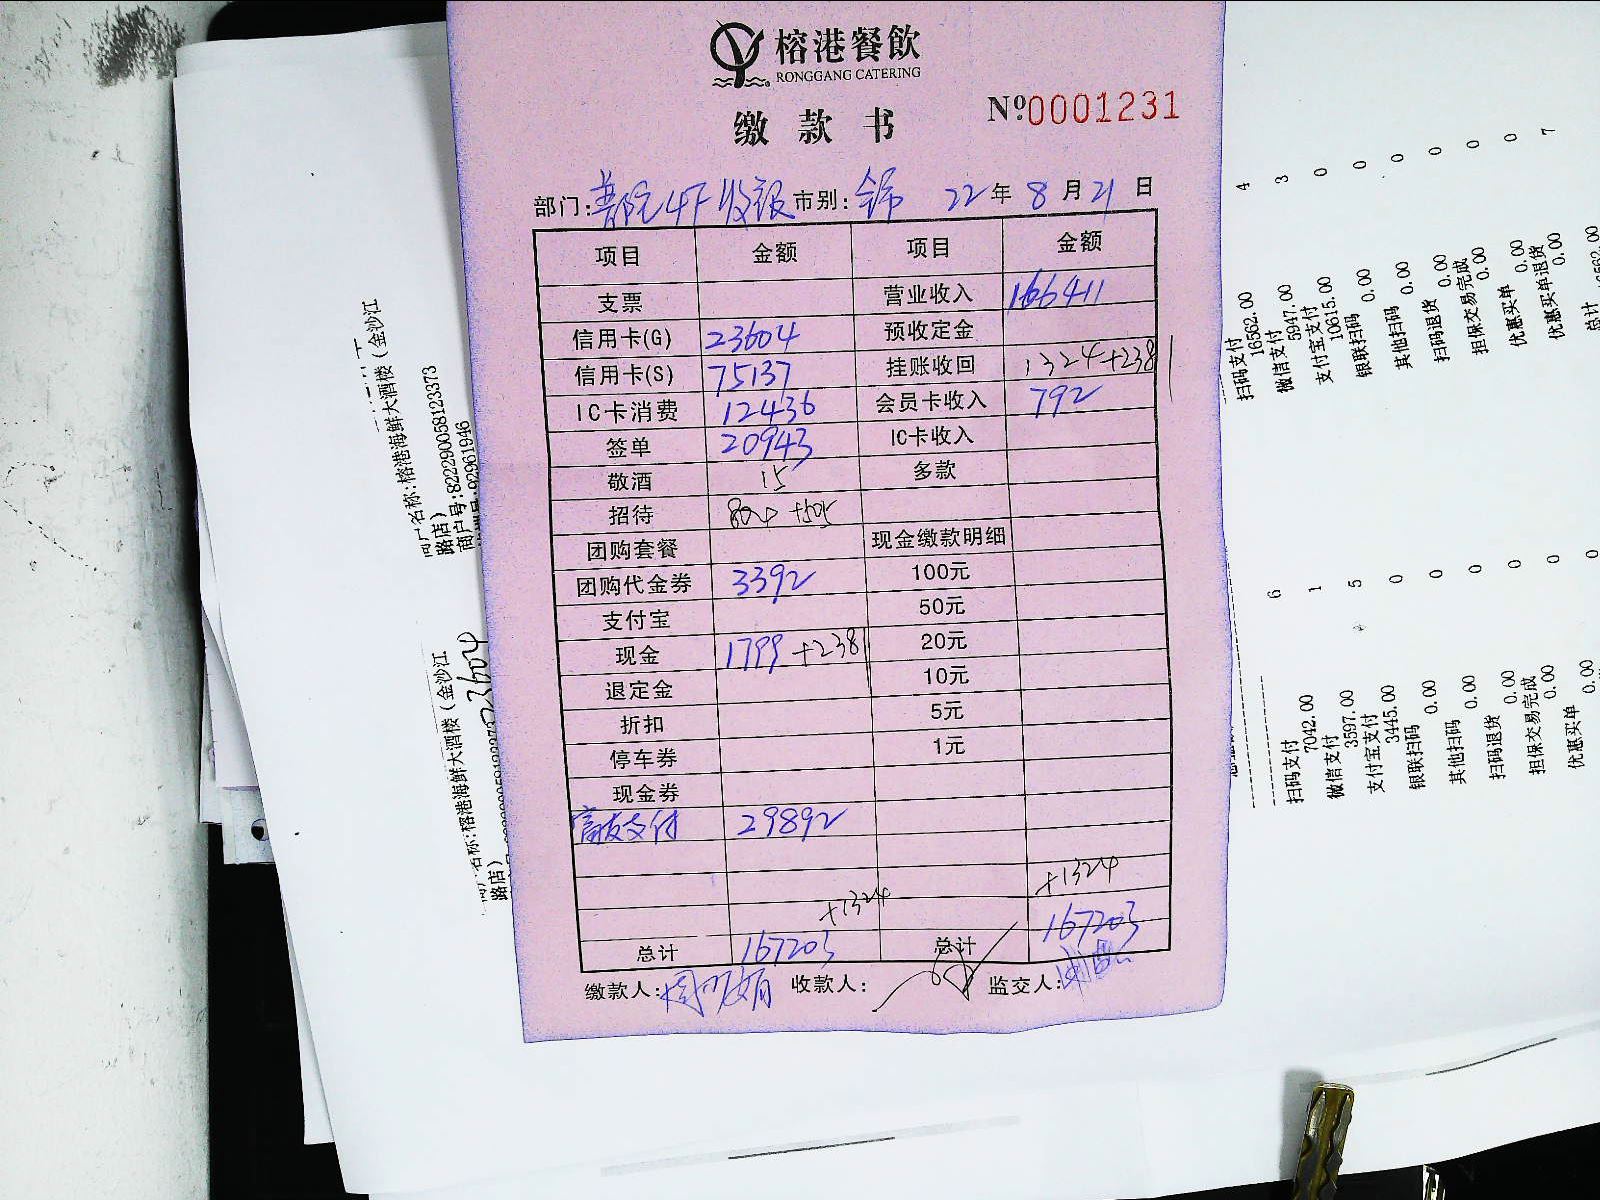 榕港餐飲
RONGGANG CATERING
缴款书
Nº0001231
部门:普陀4F收银 市别:全市 22年8月21日
项目 金额 项目 金额
支票 营业收入 166411
信用卡(G) 23604 预收定金
信用卡(S) 75137 挂账收回 1324+2381
IC卡消费 12436 会员卡收入 792
签单 20943 IC卡收入
敬酒 15 多款
招待 800 +505
团购套餐 现金缴款明细
团购代金券 3392 100元
支付宝 50元
现金 1799 +2381 20元
退定金 10元
折扣 5元
停车券 1元
现金券
支付 29892
+1324 +1324
总计 167203 总计 167203
缴款人: 收款人: 监交人:
商户名称:榕港海鲜大酒楼(金沙江
路店)
商户号:822290058123373
:92961946
户名称:榕港海鲜大酒楼(金沙江
路店)
23604
扫码支付 4
16562.00
微信支付 3
5947.00
支付宝支付 0
10615.00
银联扫码 0
0.00
其他扫码 0
0.00
扫码退货 0
0.00
担保交易完成 0
0.00
优惠买单 0
0.00
优惠买单退货 7
0.00
总计
扫码支付 6
7042.00
微信支付 1
3597.00
支付宝支付 5
3445.00
银联扫码 0
0.00
其他扫码 0
0.00
扫码退货 0
0.00
担保交易完成 0
0.00
优惠买单 0
0.00
0